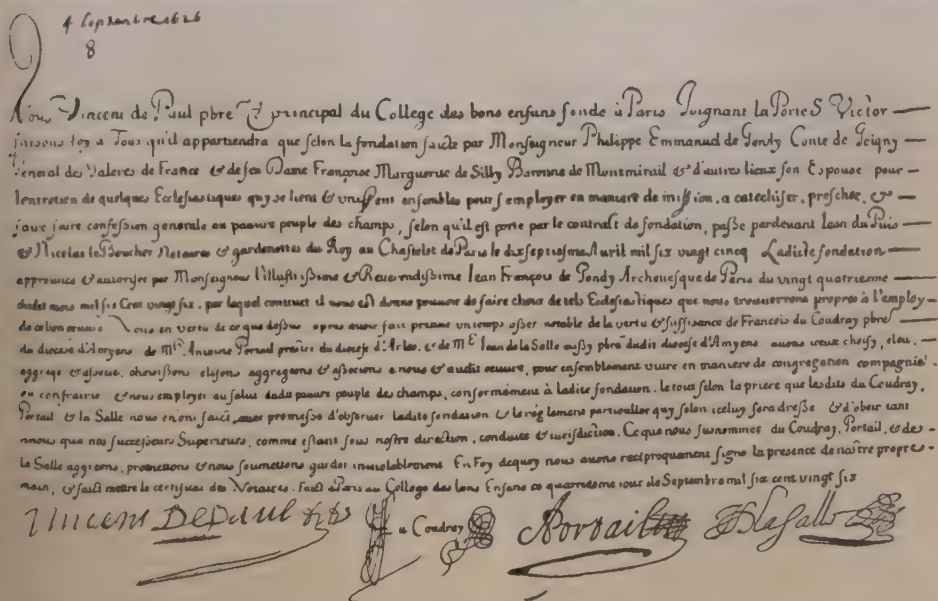 4 Septembre 1626
8
Nous Vincent de Paul pbre & principal du College des bons enfans fonde à Paris Joignant la Porte S Victor
faisons foy a Tous qu'il appartiendra que selon la fondation faicte par Monseigneur Philippe Emmanuel de Gondy Conte de Joigny
General des Galeres de France & de feu Dame Françoise Marguerite de Silly Baronne de Montmirail & d'autres lieux son Espouse pour
lentretien de quelques Ecclesiastiques quy se lient & unissent ensembles pour s'employer en maniere de mission, a catechiser, prescher, &
faire confession generale au pauvre peuple des champs, selon qu'il est porte par le contrat de fondation, passe pardevant Jean du Puis
& Nicolas le Boucher Notaires & gardenottes du Roy au Chastelet de Paris le dixseptiesme Avril mil six vingt cinq Ladicte fondation
approuvee & autorisee par Monseigneur l'illustrissime & Reverendissime Jean François de Gondy Archevesque de Paris du vingt quatriesme
dudit mois mil six Cent vingt six, par lequel contract il nous est donne pouvoir de faire choix de tels Ecclesiastiques que nous trouverrons propres à l'employ
de ce bon œuvre Nous en vertu de ce que dessus apres avoir fait preuve un temps asses notable de la vertu & suffisance de Francois du Coudray pbre
du diocese d'Amyens de Mre Antoine Portail prestre du diocese d'Arles, & de Mre Jean de la Salle aussy pbre dudit diocese d'Amyens avons iceux choisy, eleu,
aggrege & associe, choisissons elisons aggregeons & associons a nous & audit œuvre, pour ensemblement vivre en maniere de congregation compagnie
ou confrairie & nous employer au salut dudit pauvre peuple des champs, conformément à ladite fondation. le tout selon la priere que lesdits du Coudray,
Portail & la Salle nous en ont faict, avec promesse d'observer ladite fondation & le réglement particulier quy selon icelle sera dresse & d'obeir tant
a nous qua nos successeurs Superieurs, comme estant sous nostre direction, conduite & iurisdiction. Ce que nous susnommes du Coudray, Portail, & de
la Salle aggreons, promettons & nous soumettons garder inviolablement En Foy dequoy nous avons reciproquement signe la presente de nostre propre
main, & faict mettre le certificat des Notaires. Faict à Paris au College des bons Enfans ce quatriesme iour de Septembre mil six cent vingt six
Vincent DePaul du Coudray APortail JdelaSalle